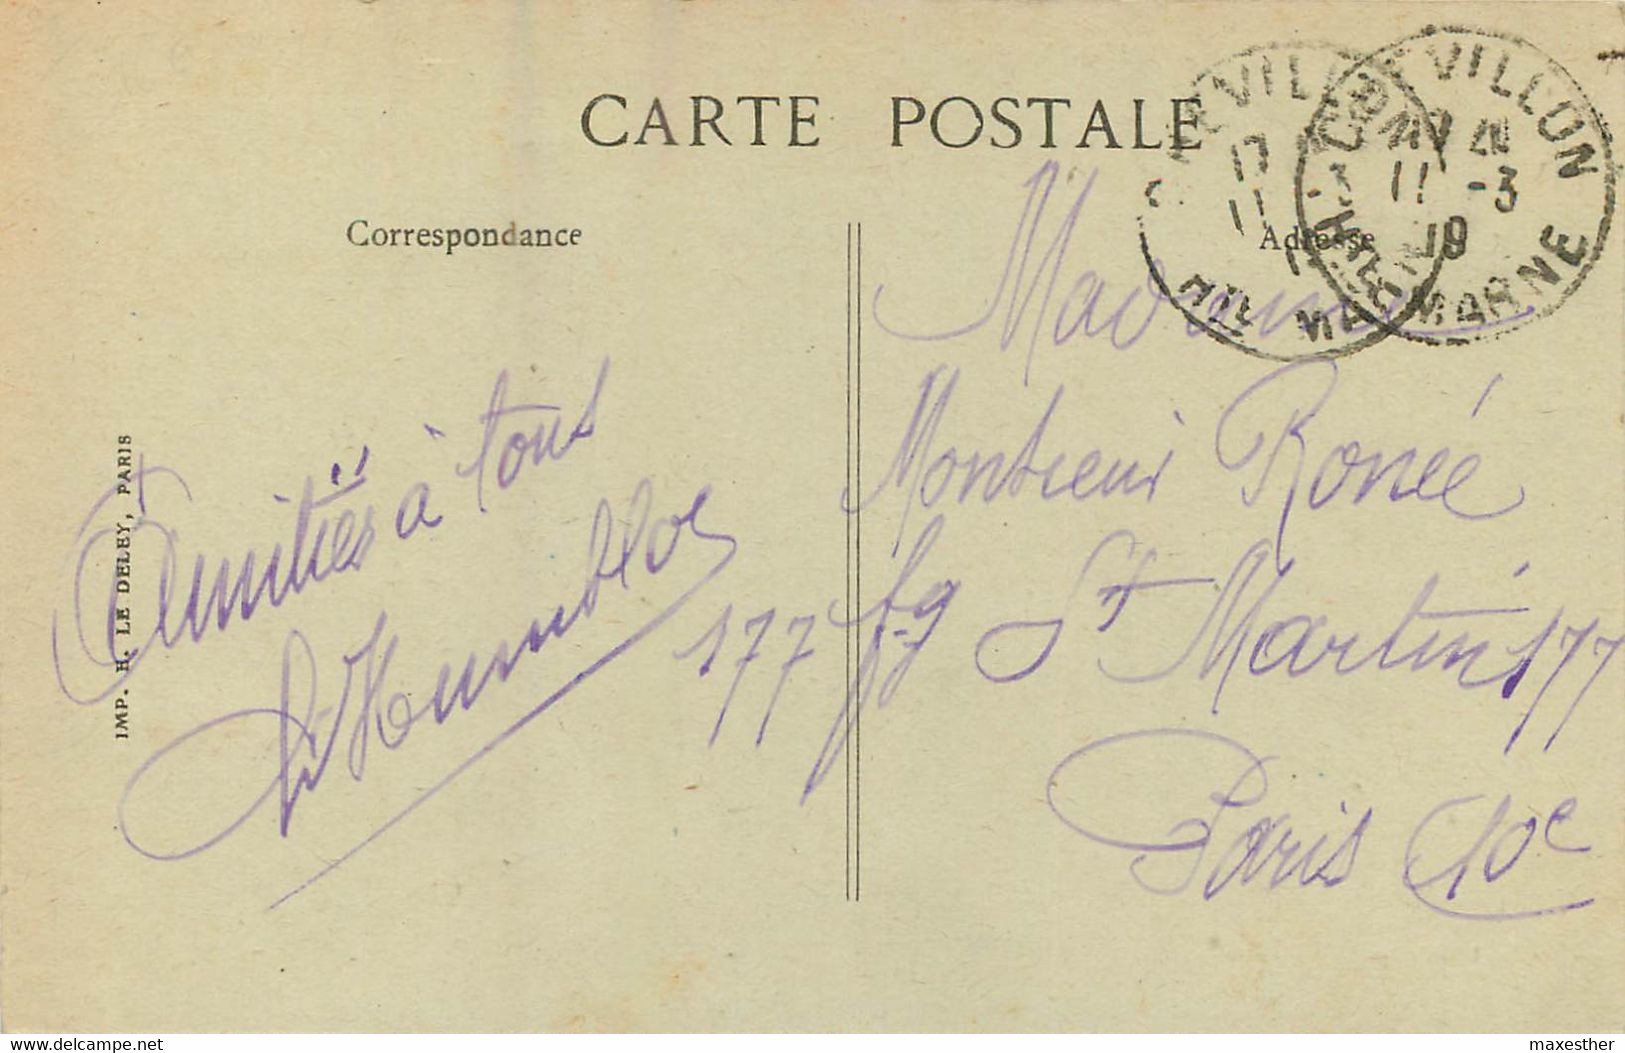 CARTE POSTALE
Correspondance
Adresse
VILLON
11 -3
19
MARNE
17
11
Madame
Ronée
fg St Martin 177
Paris 10e
177
Amitiés à tous
Humblot
IMP. H. LE DELEY, PARIS
www.delcampe.net
maxesther